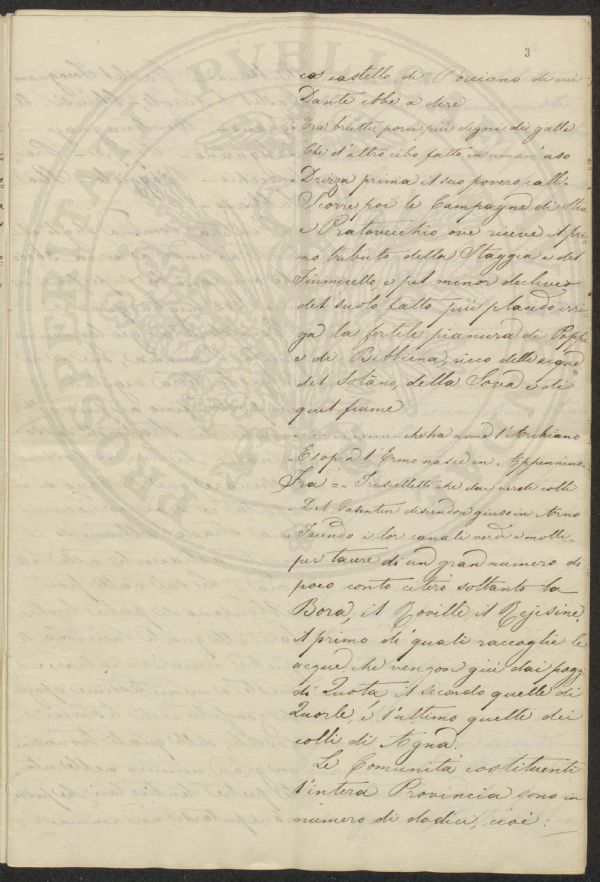 3
co castello di Porciano di cui
Dante ebbe a dire
Tra brutti porci più degni di galle
Che d'altro cibo fatto in uman' uso
Drizza prima il suo povero calle
Scorre poi le Campagne di Stia
e Pratovecchio ove riceve il
no tributo della Staggia e del
Fiumicello, e pel minor declive
del suolo fatto più placido irri-
ga la fertile pianura di Poppi
e di Bibbiena, ricco delle acque
del Sotano, della Sova e di
quel fiume
che ha nome l'Archiano
E sopra l'Ermo nasce in Appennino.
Fra = I ruscelletti che dai verdi colli
Del Casentin discendon giuso in Arno
Facendo i lor canali verdi e molli =
per tacere di un gran numero di
poco conto citerò soltanto la
Bora, il Roville il Rejesine,
il primo di quali raccoglie le
acque che vengon giù dai poggi
di Quota, il secondo quelle di
Quorle, e l'ultimo quelle dei
colli di Agna.
Le Comunità costituenti
l'intera Provincia sono in
numero di dodici, cioè:
PROPRIETÀ PUBLICA